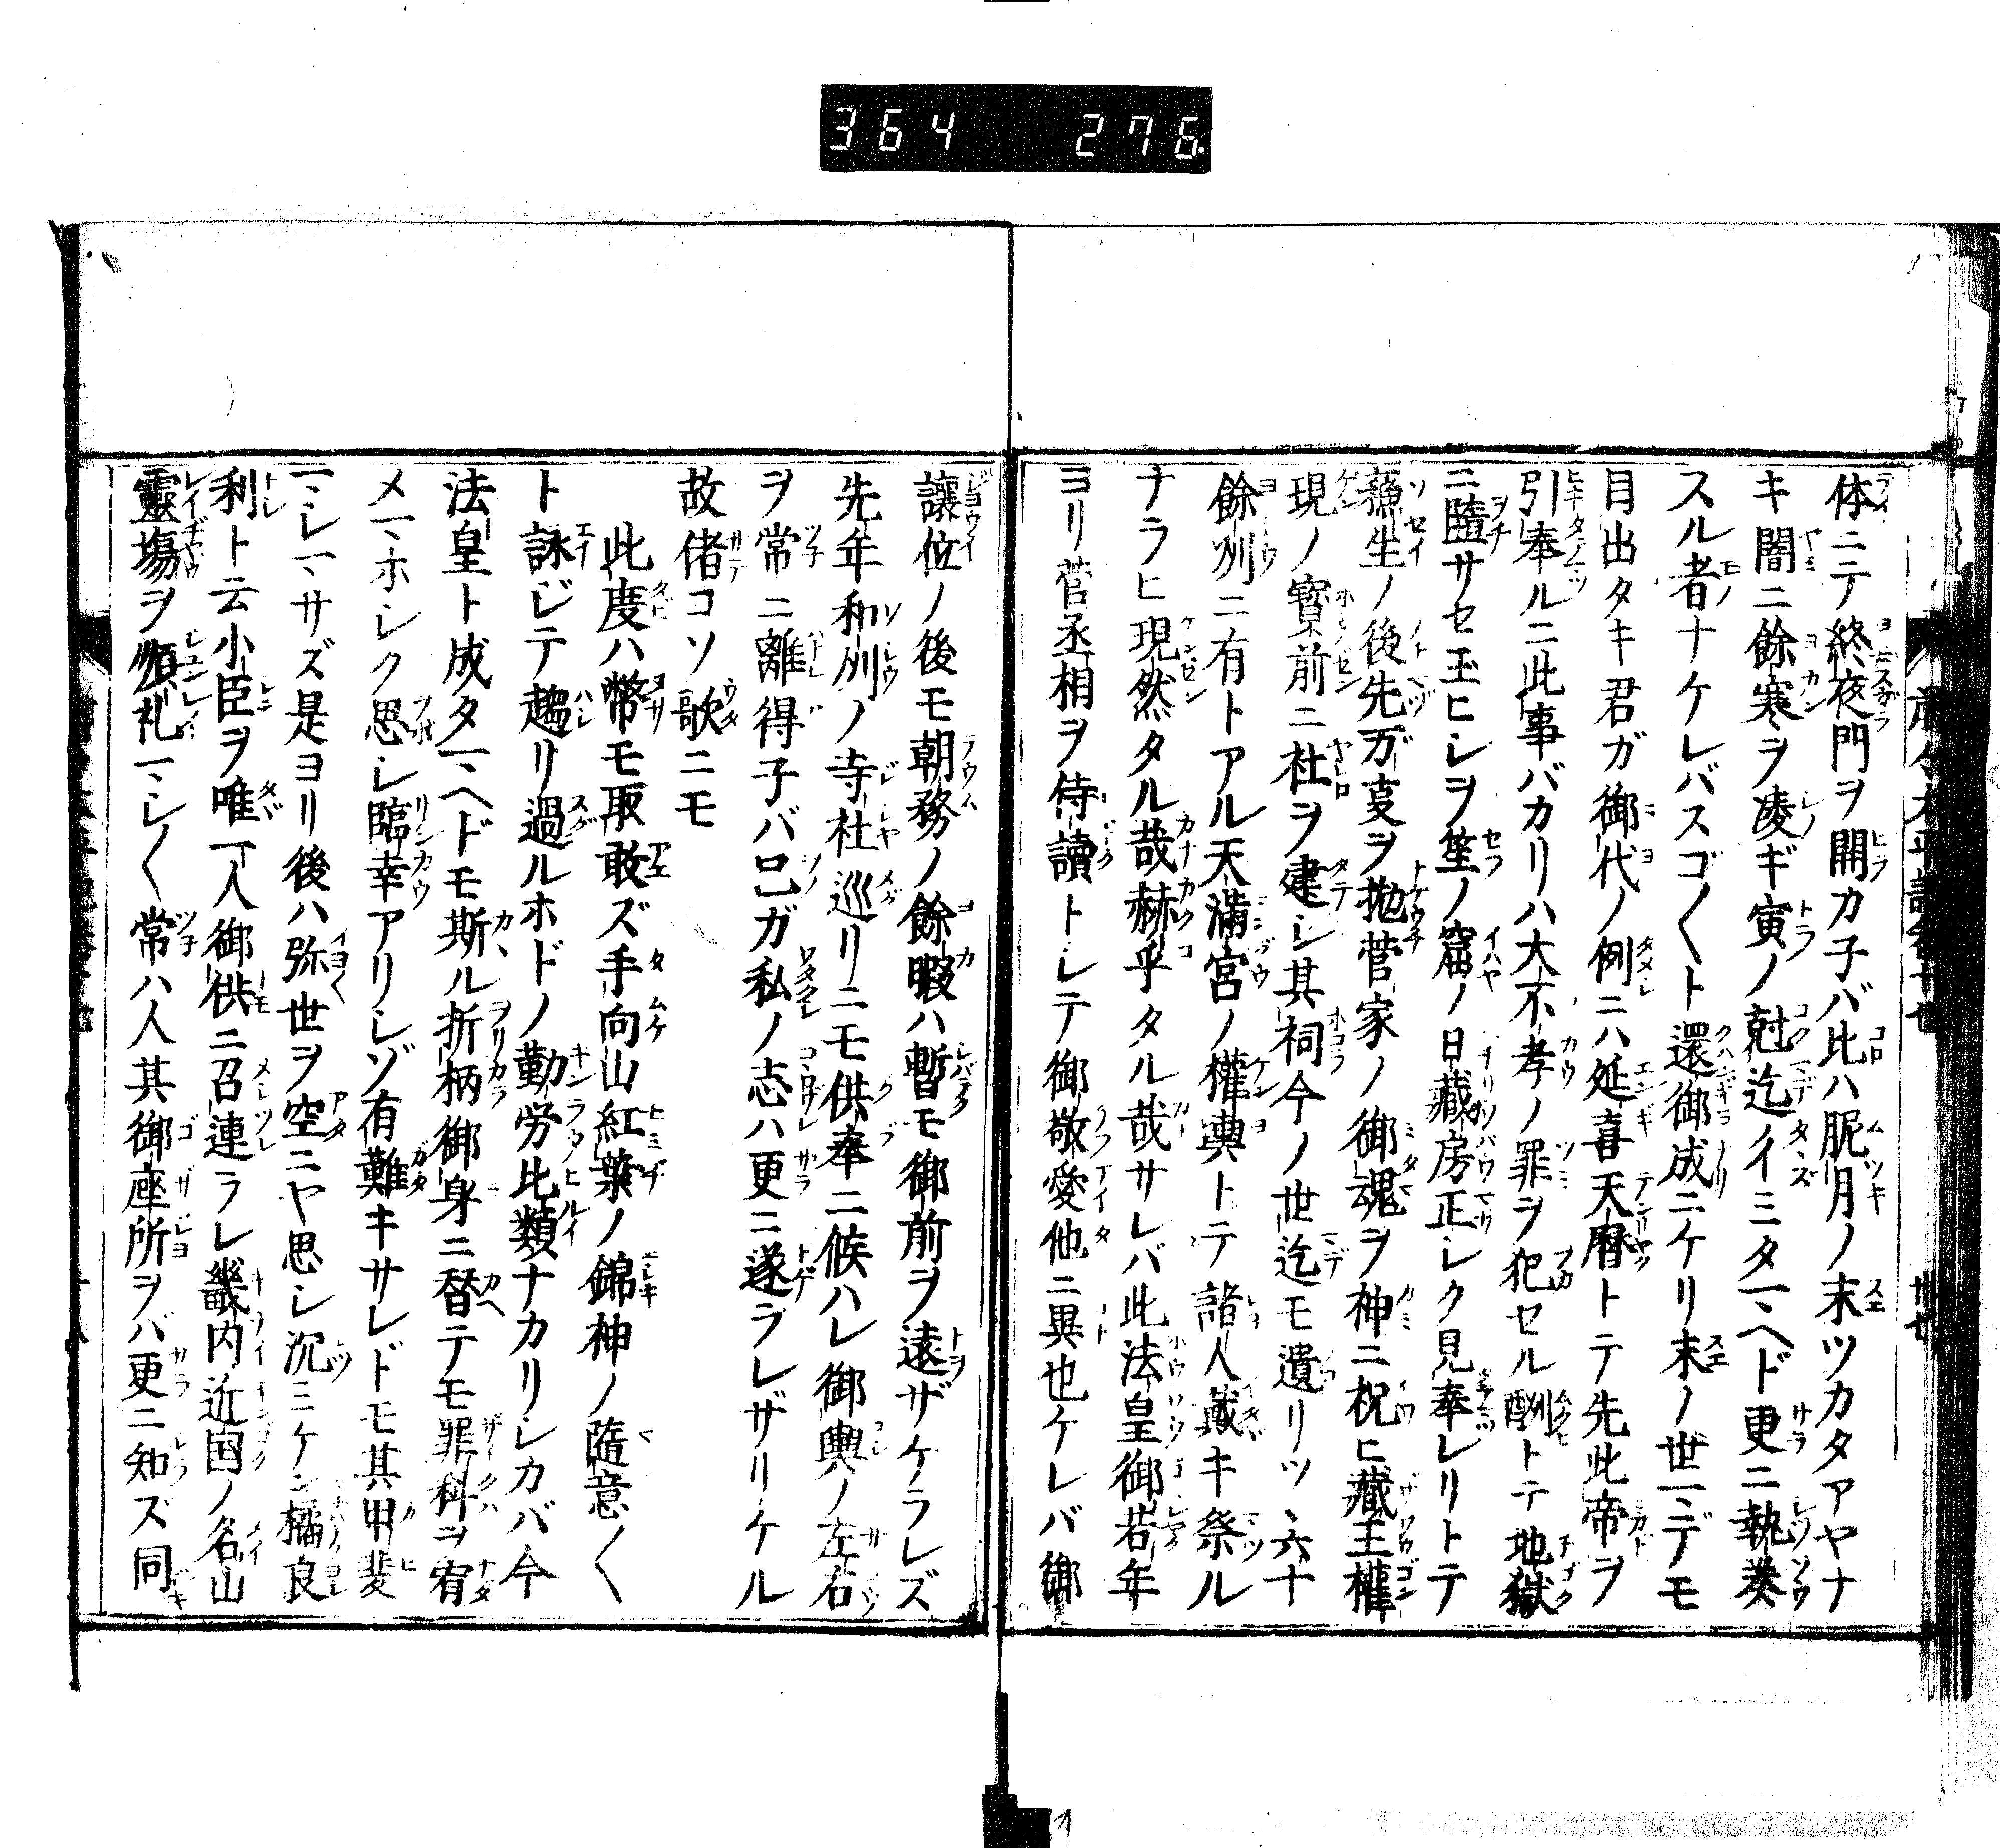 364 276
体ニテ終夜門ヲ開カ子バ比ハ朧月ノ末ツカタアヤナ
キ闇ニ餘寒ヲ凌ギ寅ノ尅迄イミタマヘド更ニ執奏
スル者ナケレバスゴ〱ト還御成ニケリ末ノ世マデモ
目出タキ君ガ御代ノ例ニハ延喜天暦トテ先此帝ヲ
引奉ルニ此事バカリハ大不孝ノ罪ヲ犯セル酬トテ地獄
ニ墮サセ玉ヒシヲ笙ノ窟ノ日藏房正シク見奉レリトテ
蘓生ノ後先万亊ヲ抛菅家ノ御魂ヲ神ニ祝ヒ藏王權
現ノ寳前ニ社ヲ建シ其祠今ノ世迄モ遺リツヽ六十
餘州ニ有トアル天滿宮ノ權輿トテ諸人戴キ祭ル
ナラヒ現然タル哉赫乎タル哉サレバ此法皇御若年
ヨリ菅丞相ヲ侍讀トシテ御敬愛他ニ異也ケレバ御
讓位ノ後モ朝務ノ餘暇ハ暫モ御前ヲ遠ザケラレズ
先年和州ノ寺社巡リニモ供奉ニ候ハレ御輿ノ左右
ヲ常ニ離得子バ己ガ私ノ志ハ更ニ遂ラレザリケル
故偖コソ歌ニモ
此度ハ幣モ取敢ズ手向山紅葉ノ錦神ノ隨意〱
ト詠ジテ趨リ過ルホドノ勤労比類ナカリシカバ今
法皇ト成タマヘドモ斯ル折柄御身ニ替テモ罪科ヲ宥
メマホシク思シ臨幸アリシゾ有難キサレドモ其甲斐
マシマサズ是ヨリ後ハ弥世ヲ空ニヤ思シ沉ミケン橘良
利ト云小臣ヲ唯一人御供ニ召連ラレ畿内近国ノ名山
靈塲ヲ順礼マシ〱常ハ人其御座所ヲバ更ニ知ズ同